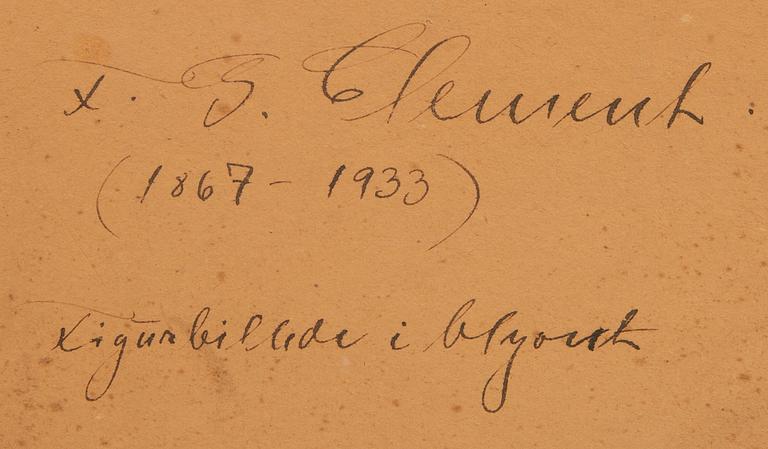 F. G. Clement.
(1867 - 1933)
Figurbillede i blyant